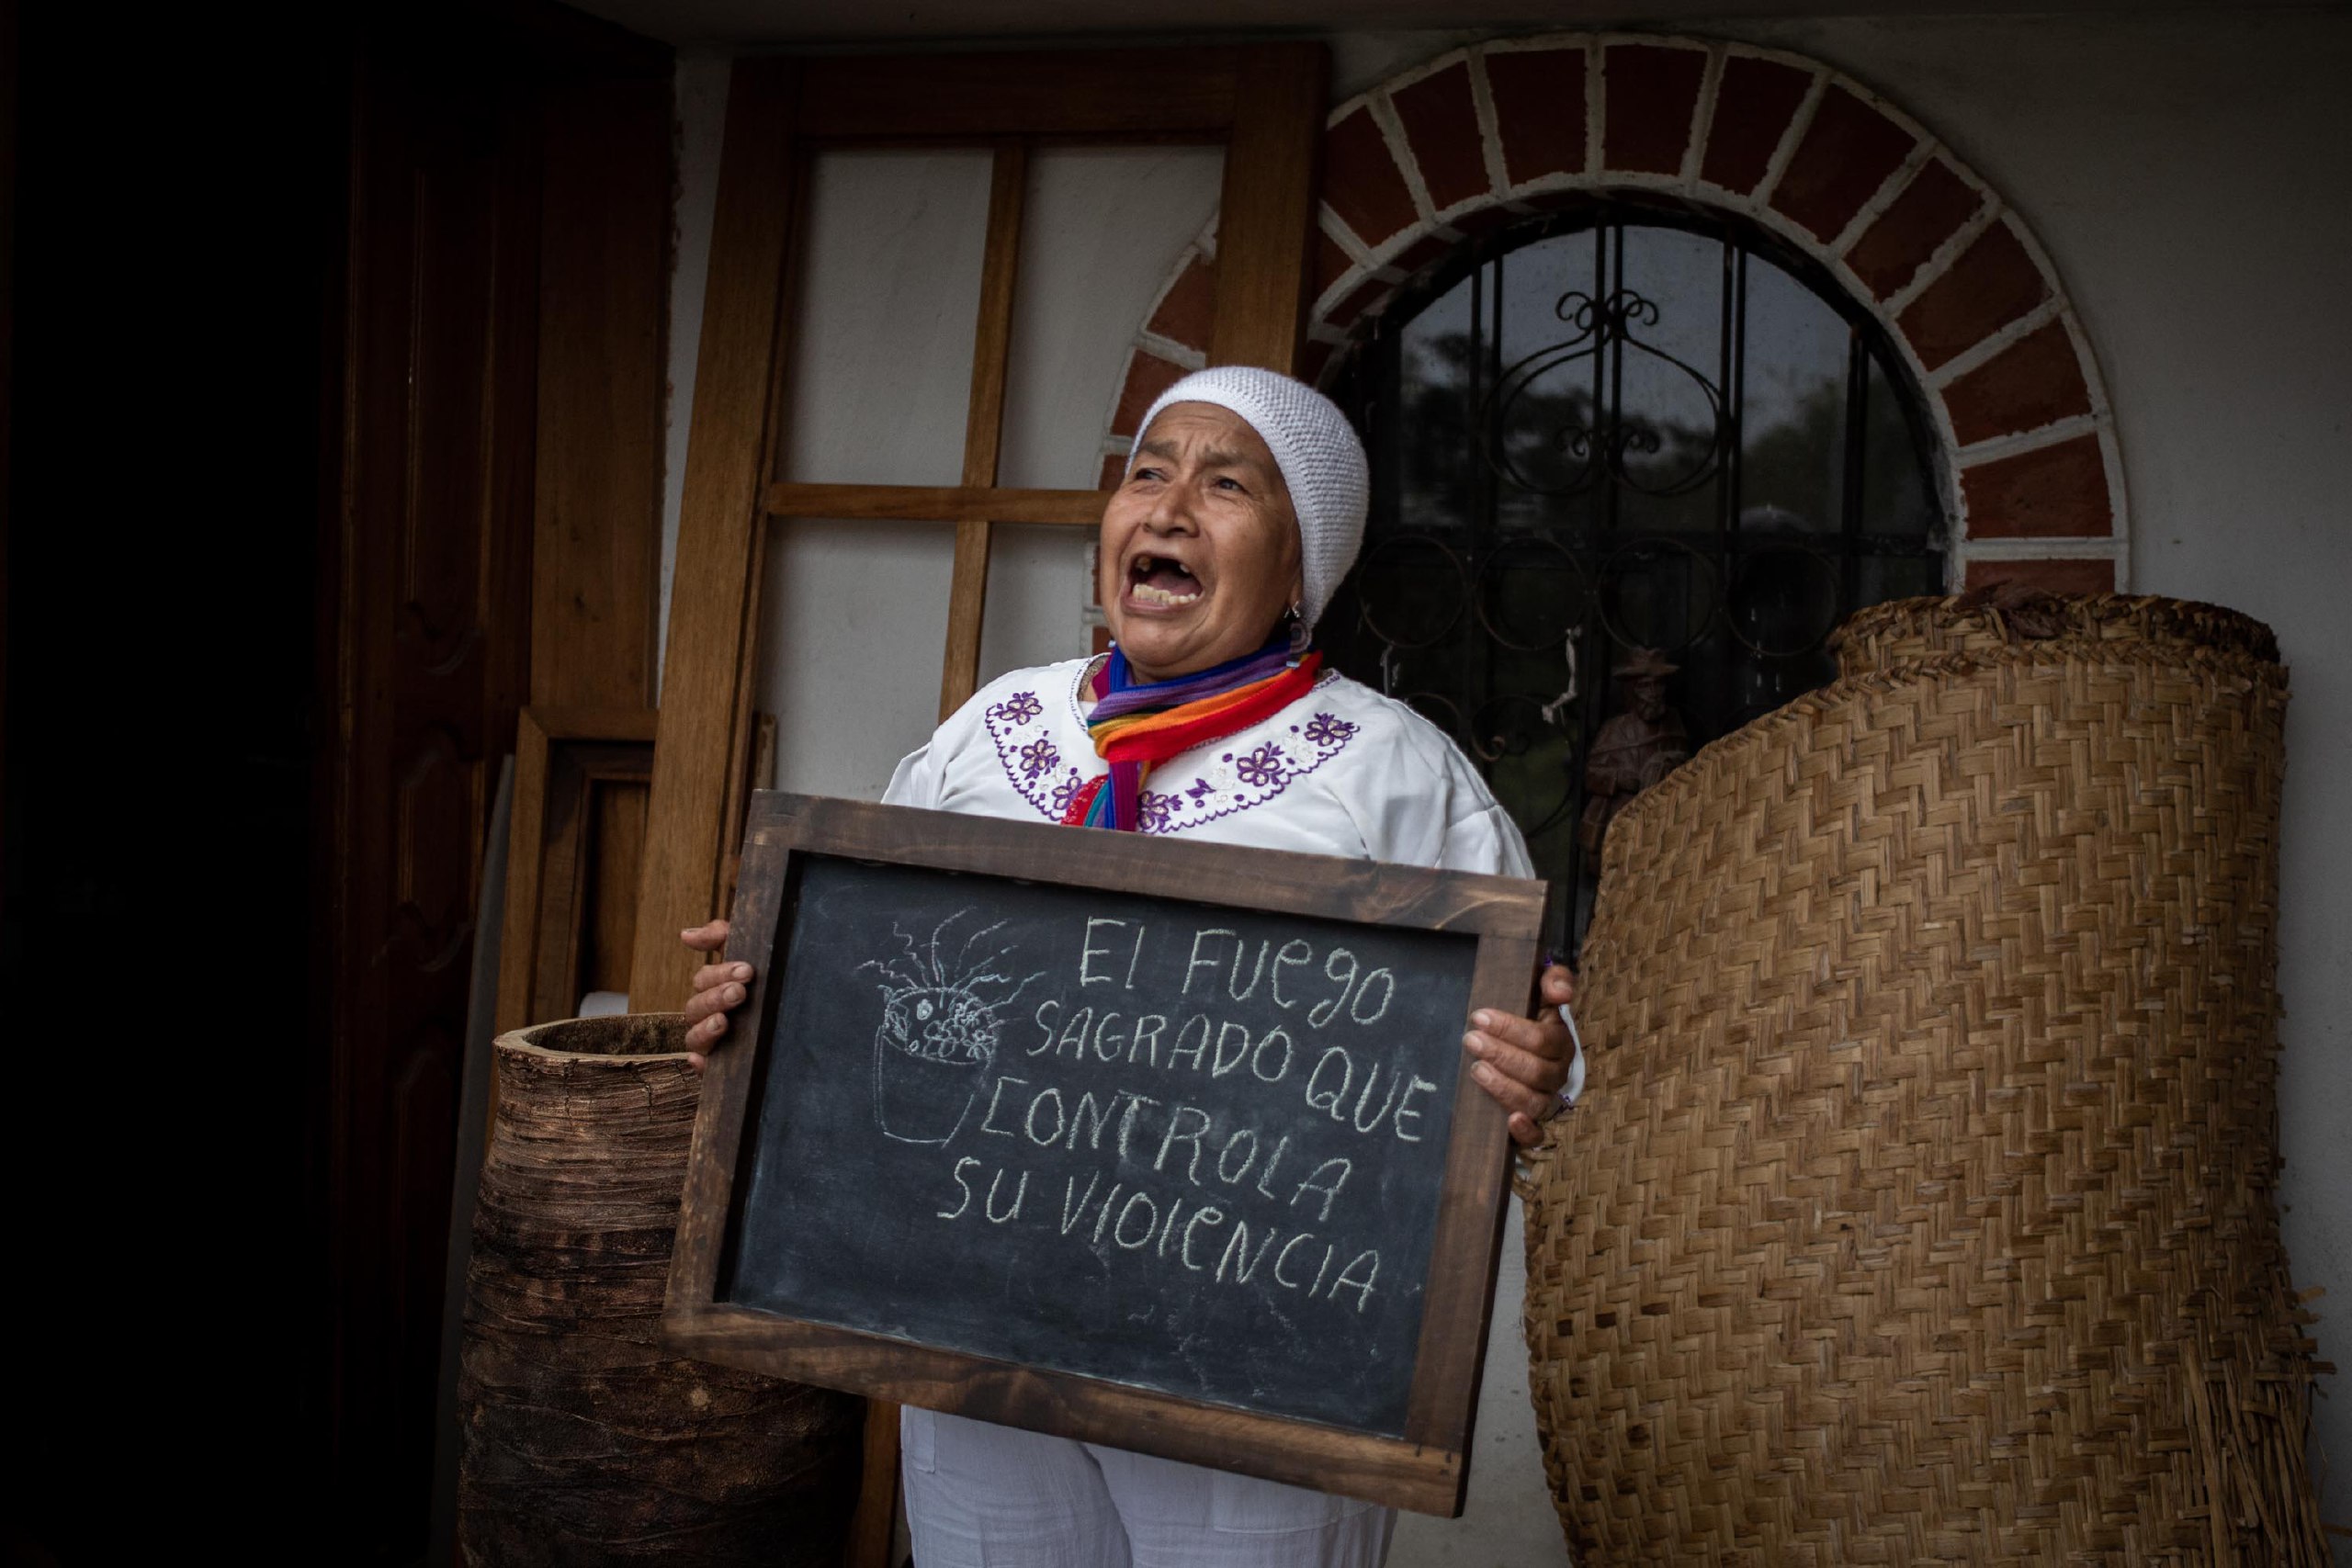 El FUego
SAGRADO QUE
CONTROLA
SU VIOlENCIA